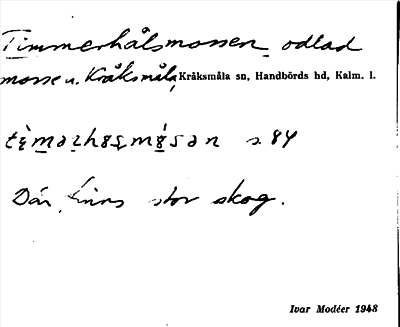 Timmerhålsmossen, odlad
mosse u. Kråksmåla, Kråksmåla sn, Handbörds hd, Kalm. l.
s. 84
Där finns stor skog.
Ivar Modéer 1948